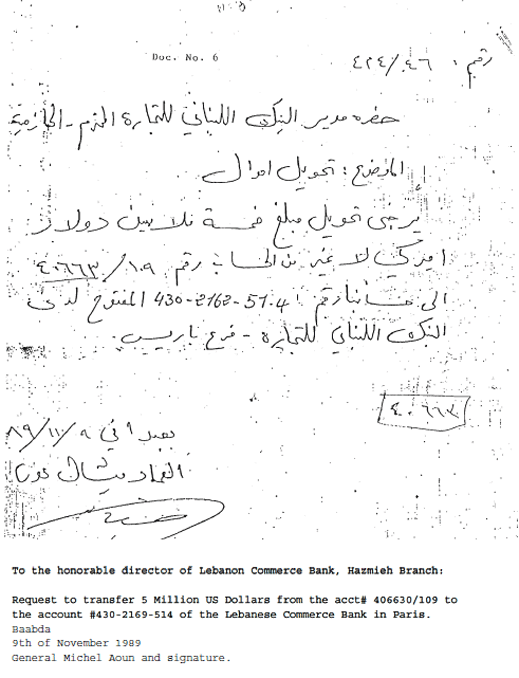 Doc. No. 6
رقم:
حضرة مدير البنك اللبناني للتجارة المحترم - الحازمية
الموضوع: تحويل اموال
يرجى تحويل مبلغ خمسة ملايين دولار
اميركي لا غير من الحساب رقم
الى حسابنا رقم المفتوح لدى
البنك اللبناني للتجارة - فرع باريس.
بعبدا في ٩/١١/٨٩
العماد ميشال عون
To the honorable director of Lebanon Commerce Bank, Hazmieh Branch:
Request to transfer 5 Million US Dollars from the acct# 406630/109 to
the account #430-2169-514 of the Lebanese Commerce Bank in Paris.
Baabda
9th of November 1989
General Michel Aoun and signature.